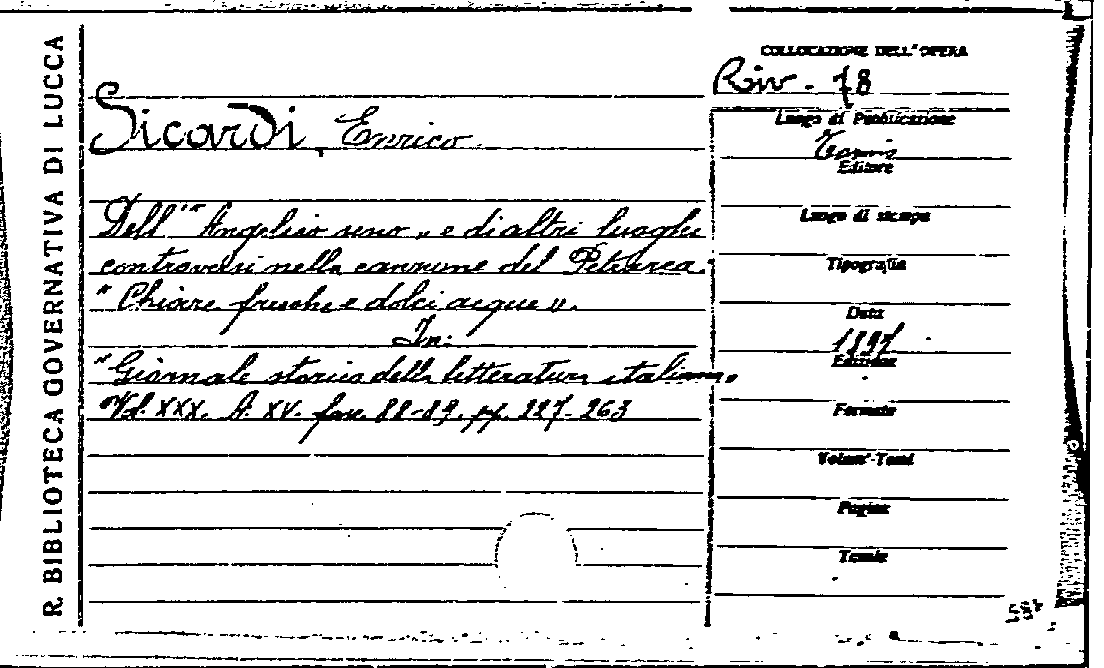 R. BIBLIOTECA GOVERNATIVA DI LUCCA
COLLOCAZIONE DELL'OPERA
Riv. - 78
Sicardi, Enrico
Luogo di Pubblicazione
Torino
Editore
Luogo di stampa
Tipografia
Data
1897
Edizione
Formato
Volumi-Tomi
Pagine
Tavole
Dell'"Angelico seno" e di altri luoghi
controversi nella canzone del Petrarca:
"Chiare fresche e dolci acque".
In:
"Giornale storico della letteratura italiana.
Vol. XXX. A. XV. fasc. 88-89. pp. 227-263
587